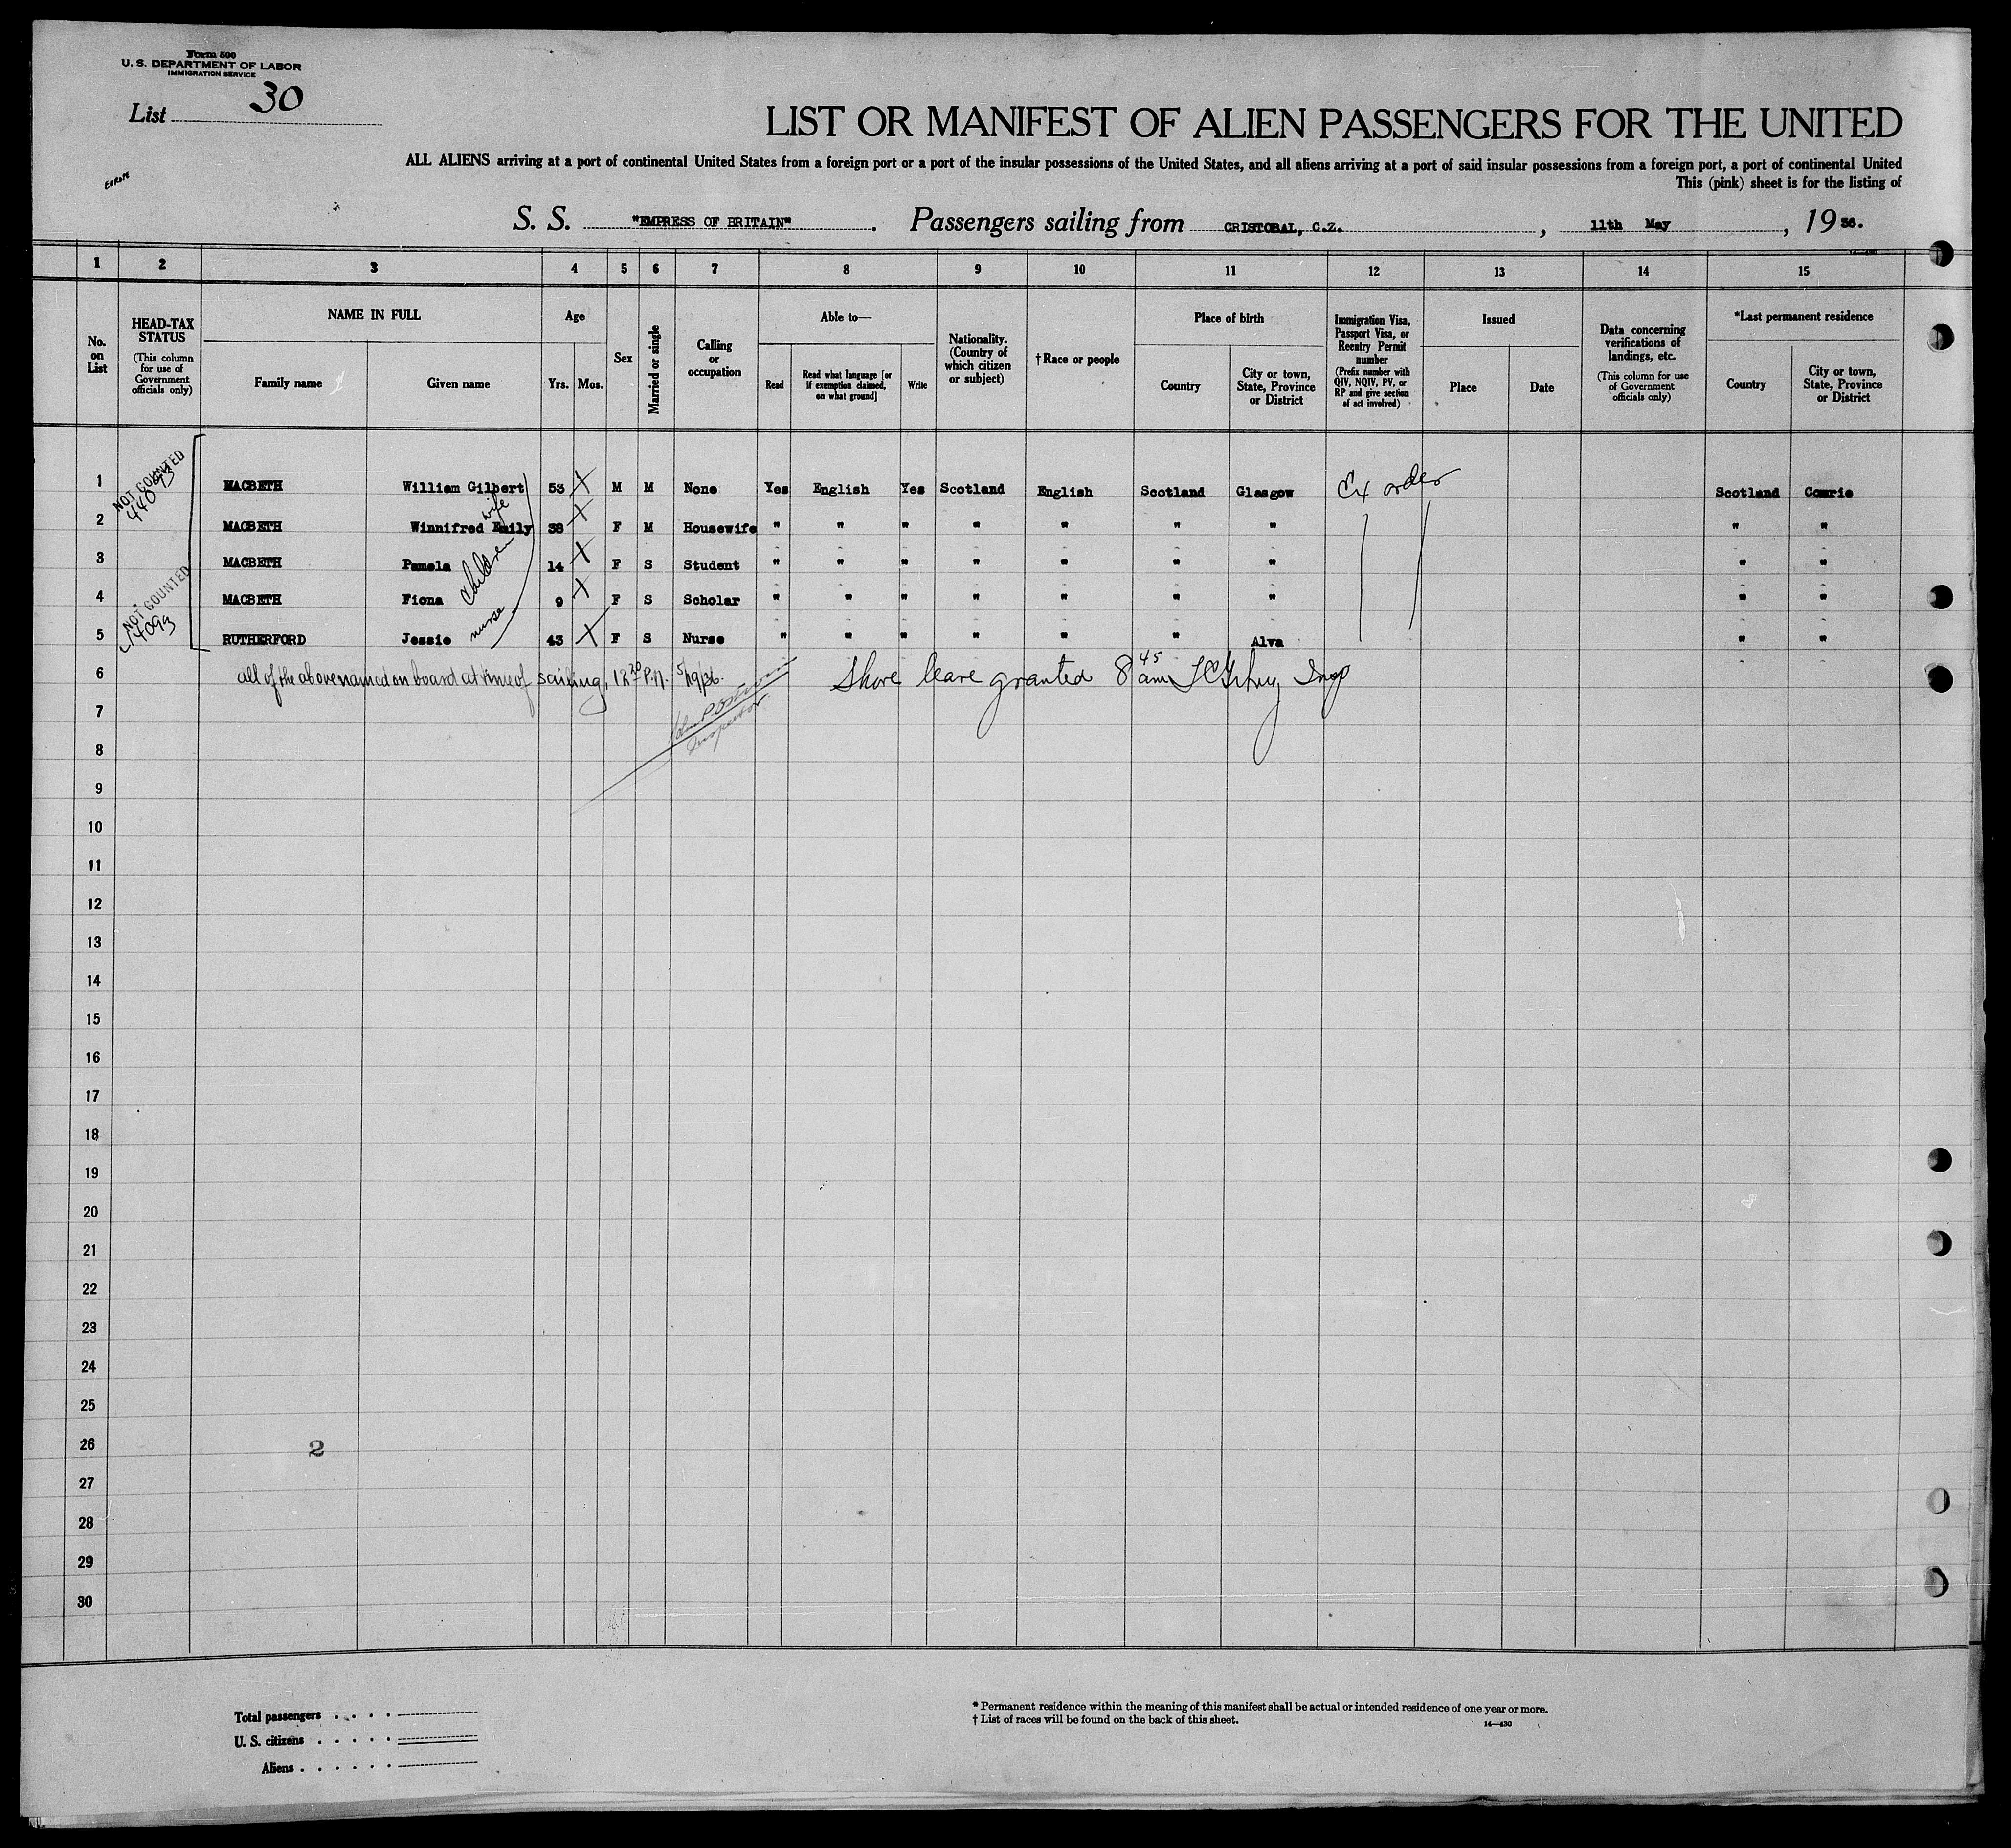 Form 500
U. S. DEPARTMENT OF LABOR
IMMIGRATION SERVICE
List 30
LIST OR MANIFEST OF ALIEN PASSENGERS FOR THE UNITED
ALL ALIENS arriving at a port of continental United States from a foreign port or a port of the insular possessions of the United States, and all aliens arriving at a port of said insular possessions from a foreign port, a port of continental United
This (pink) sheet is for the listing of
Europe
S. S. "EMPRESS OF BRITAIN". Passengers sailing from CRISTOBAL, C.Z., 11th May, 1936.
1 2 3 4 5 6 7 8 9 10 11 12 13 14 15
No. on List
HEAD-TAX STATUS (This column for use of Government officials only)
NAME IN FULL
Family name Given name
Age
Yrs. Mos.
Sex
Married or single
Calling or occupation
Able to—
Read Read what language [or if exemption claimed, on what ground] Write
Nationality. (Country of which citizen or subject)
†Race or people
Place of birth
Country City or town, State, Province or District
Immigration Visa, Passport Visa, or Reentry Permit number (Prefix number with QIV, NQIV, PV, or RP and give section of act involved)
Issued
Place Date
Data concerning verifications of landings, etc. (This column for use of Government officials only)
*Last permanent residence
Country City or town, State, Province or District
NOT COUNTED
44093
1 MACBETH William Gilbert 53 X M M None Yes English Yes Scotland English Scotland Glasgow Ex order Scotland Comrie
2 MACBETH Winnifred Emily wife 38 X F M Housewife " " " " " " " " "
3 MACBETH Pamela children 14 X F S Student " " " " " " " " "
4 MACBETH Fiona 9 X F S Scholar " " " " " " " " "
NOT COUNTED
44093
5 RUTHERFORD Jessie nurse 43 X F S Nurse " " " " " " Alva " "
6 all of the above named on board at time of sailing, 12 30 P.M. 5/19/36. Shore leave granted 8 45 am Insp
Inspector
7
8
9
10
11
12
13
14
15
16
17
18
19
20
21
22
23
24
25
26 2
27
28
29
30
Total passengers . . . .
U. S. citizens . . . . .
Aliens . . . . . .
* Permanent residence within the meaning of this manifest shall be actual or intended residence of one year or more.
† List of races will be found on the back of this sheet.
14—430